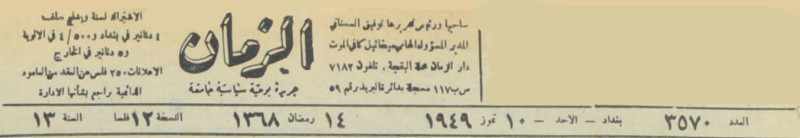 صاحبها ورئيس تحريرها توفيق السمعاني
المدير المسؤول المحامي ميخائيل كافي الموت
دار الزمان محلة البقجة، تلفون ٧١٨٢
ص ب ١١٧ مسجلة بدائرة البريد رقم ٥٩
الزمان
جريدة يومية سياسية جامعة
الاشتراك لسنة ويدفع سلف
٤ دنانير في بغداد و ٤/٥٠٠ في الالوية
و ٥ دنانير في الخارج
الاعلانات ٢٥٠ فلس عن العقد من العامود
الدائمية راجع بشأنها الادارة
العدد ٣٥٧٠ بغداد - الاحد - ١٠ تموز ١٩٤٩ ١٤ رمضان ١٣٦٨ النسخة ١٢ فلسا السنة ١٣